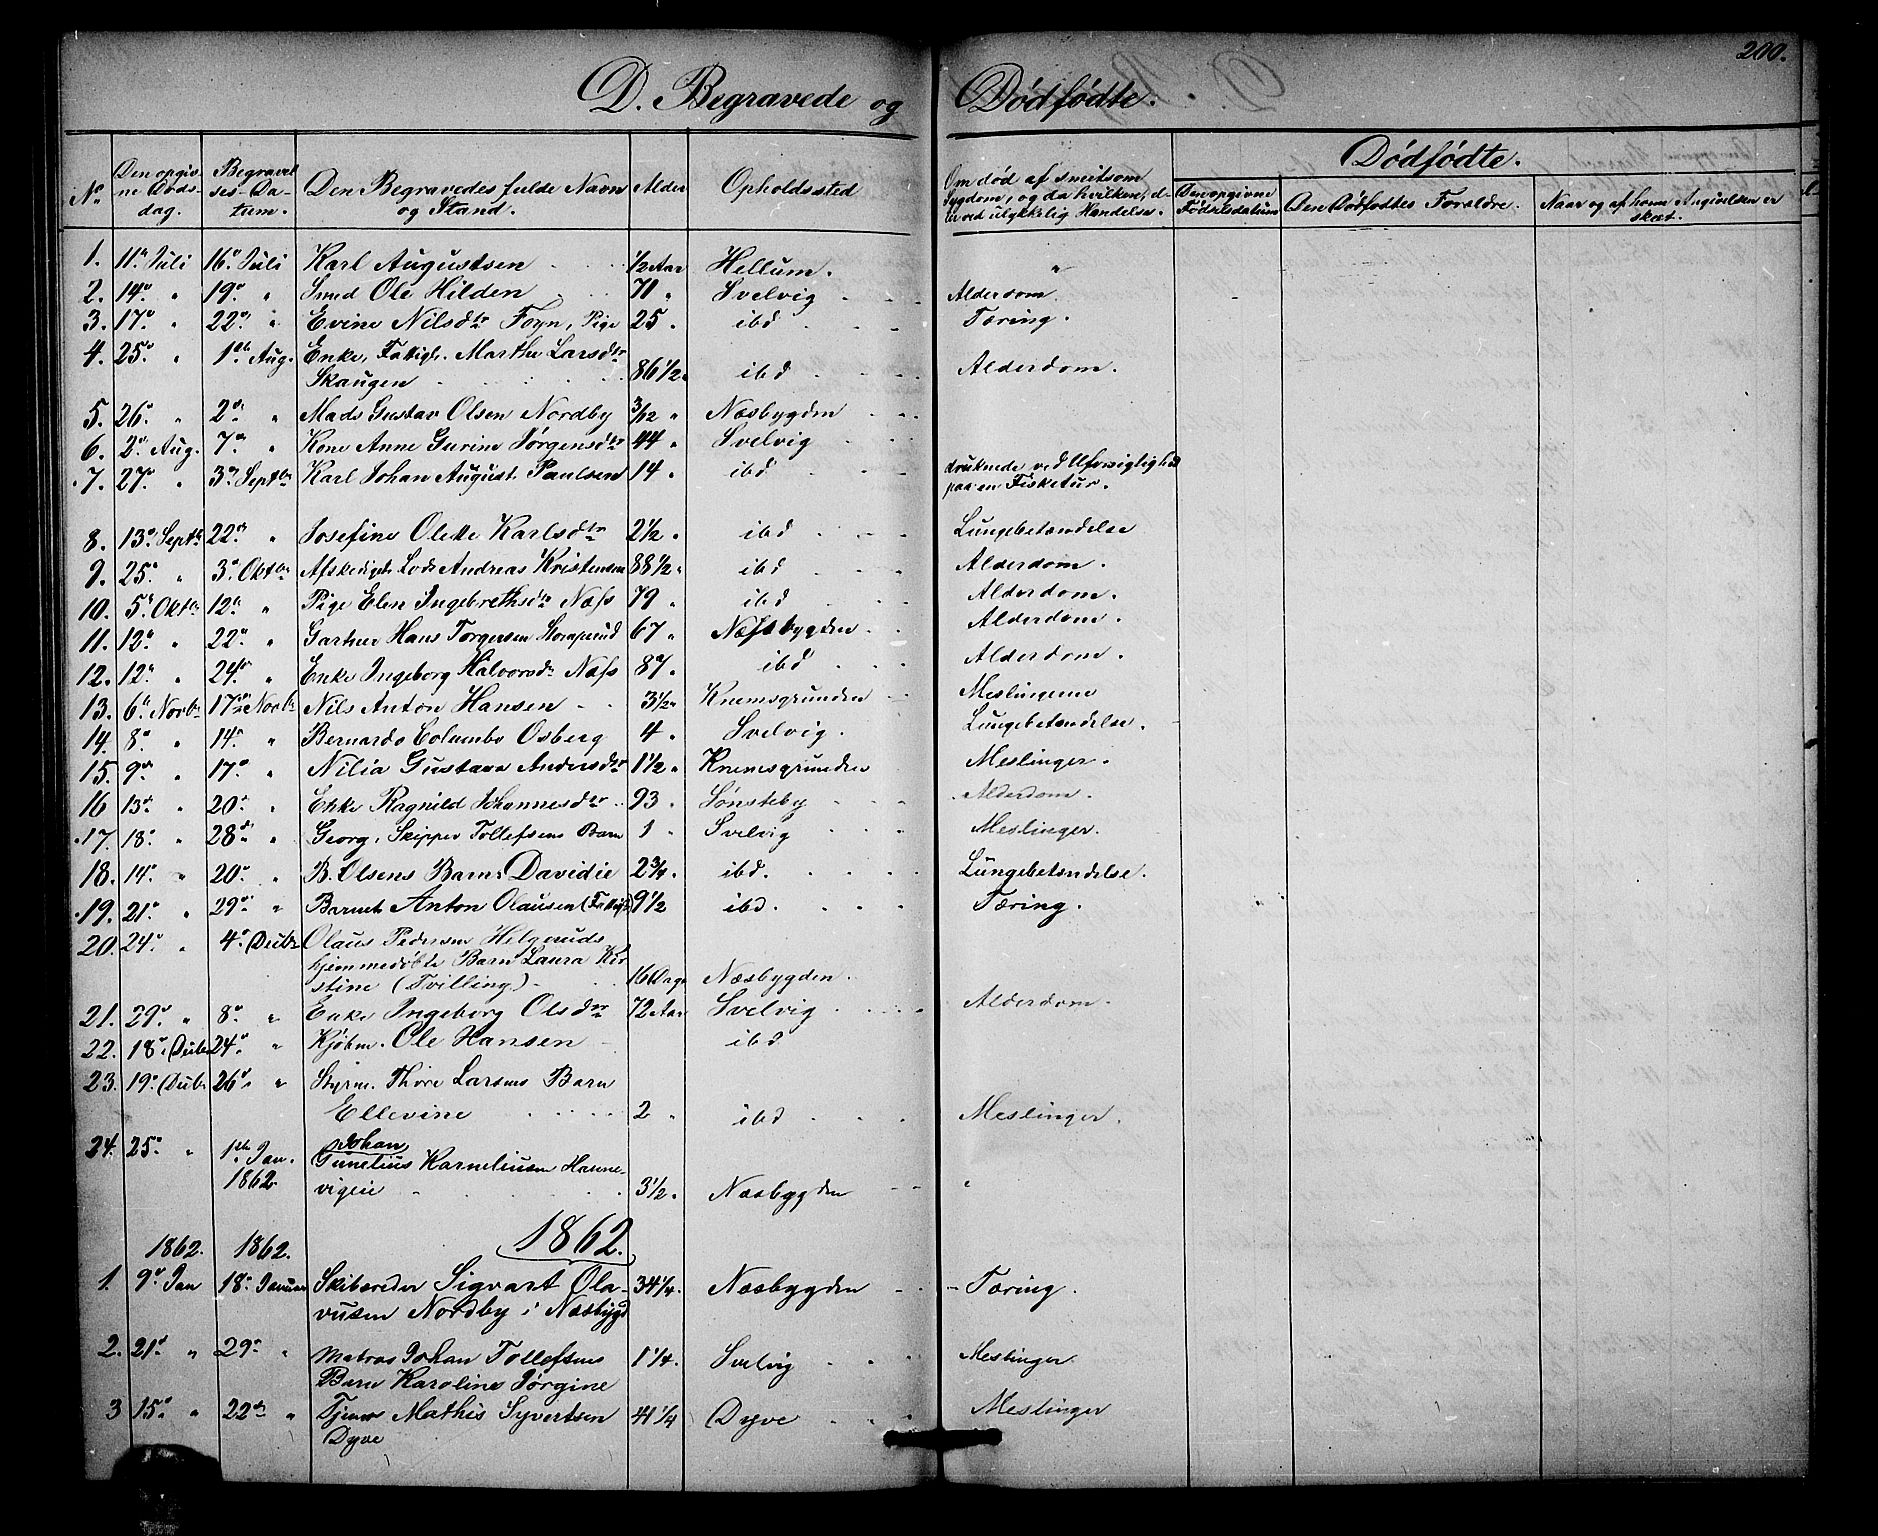 200.
D. Begravede og Dødfødte.
No Den opgivne Dødsdag. Begravelses-Datum. Den Begravedes fulde Navn og Stand. Alder Opholdssted Om død af smitsom Sygdom, og da hvilken, eller ved ulykkelig Hændelse. Dødfødte. Den opgivne Fødselsdatum Den Dødfødtes Forældre. Naar og af hvem Angivelsen er skeet.
1. 11te Juli 16de Juli Karl Augustsen 1/2 Aar Hellum. "
2. 14de " 19de " Smed Ole Hilden 71 " Svelvig Alderdom.
3. 17de " 22de " Evine Nilsdtr Foyn, Pige 25 " ibd Tæring.
4. 25de " 1ste Aug. Enke, Fattigl. Marthe Larsdtr
Skaugen 86 1/2 " ibd Alderdom.
5. 26de " 2den " Mads Gustav Olsen Nordby 3/12 " Næsbygden
6. 2den Aug. 7de " Kone Anne Gurine Jørgensdtr 44 " Svelvig
7. 27de " 3die Septbr Karl Johan August Paulsen 14 " ibd druknede ved Uforsigtighed
paa en Fisketur.
8. 13de Septbr 22de " Josefine Olette Karlsdtr 2 1/2 " ibd Lungebetændelse
9. 25de " 3die Oktbr Afskediget Lods Andreas Kristensen 88 1/2 " ibd Alderdom.
10. 5te Oktbr 12te " Pige Elen Ingebrethsdtr Næss 79 " ibd Alderdom.
11. 12te " 22de " Gartner Hans Torgersen 67 " Næssbygden Alderdom.
12. 12te " 24de " Enke Ingeborg Halvorsdtr Næss 87 " ibd Alderdom.
13. 6te Novbr 17de Novbr Nils Anton Hansen 3 1/2 " Knemsgrunden Meslingerne
14. 8de " 14de " Bernardo Columbo Osberg 4 " Svelvig. Lungebetændelse.
15. 9de " 17de " Nilia Gustava Andersdtr 1 1/2 " Knemsgrunden Meslinger.
16 13de " 20de " Enke Ragnild Johannesdtr 93 " Sønsteby Alderdom.
17. 18de " 28de " Georg, Skipper Tollefsens Barn 1 " Svelvig Meslinger.
18. 14de " 20de " B. Olsens Barn Davidie 2 3/4 " ibd. Lungebetændelse.
19. 21de " 29de " Barnet Anton Olausen (Fattigl) 9 1/2 ibd. Tæring.
20. 24de " 4de Decbr Olaus Pedersen Helgeruds
hjemmedøbte Barn Laura Kir-
stine (Tvilling) 16 Dage Næsbygden.
21. 29de " 8de " Enke Ingeborg Olsdtr 72 Aar Svelvig Alderdom.
22. 18de Decbr 24de " Kjøbm. Ole Hansen ibd
23. 19de Decbr 26de " Styrm. Thore Larsens Barn
Ellevine 2 " ibd Meslinger.
24. 25de " 1ste Jan.
1862. Johan
Gunelius Karneliusen Hanne-
vigeie 3 1/2 " Næsbygden "
1862.
1862. 1862.
1. 9de Jan 18de Januar Skibsreder Sigvart Ola-
vusen Nordby i Næsbygd 34 1/4. Næsbygden Tæring.
2. 21de " 29de " Matros Johan Tollefsens
Barn Karoline Jørgine 1 1/4. Svelvig Meslinger.
3 15de " 22de " Tjener Mathis Syvertsen
Dyve 41 1/4 Dyve Meslinger